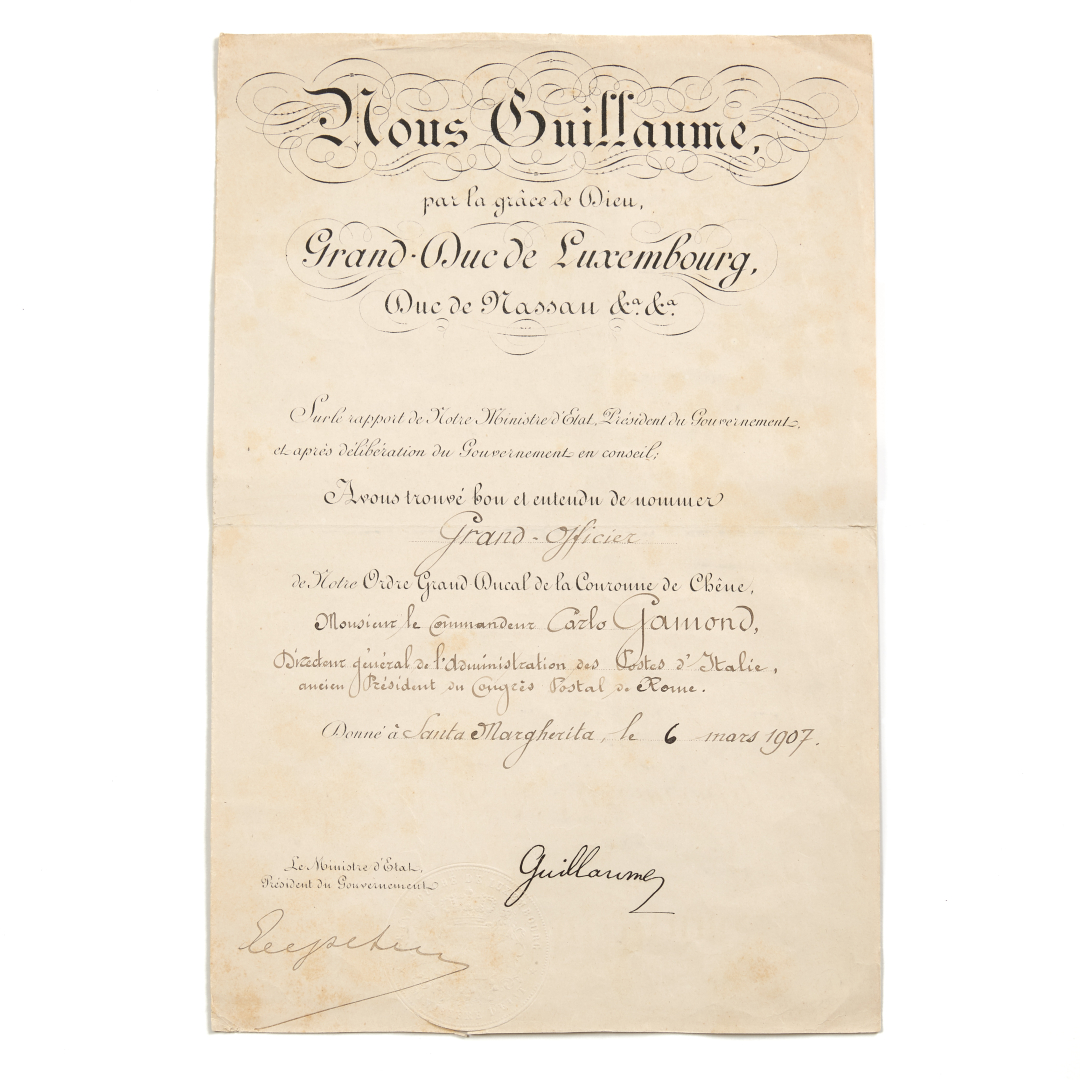 Nous Guillaume,
par la grâce de Dieu,
Grand-Duc de Luxembourg,
Duc de Nassau &a. &a.
Sur le rapport de Notre Ministre d'Etat, Président du Gouvernement,
et après délibération du Gouvernement en conseil;
Avons trouvé bon et entendu de nommer
Grand-Officier
de Notre Ordre Grand Ducal de la Couronne de Chêne,
Monsieur le Commandeur Carlo Gamond,
Directeur général de l'Administration des Postes d'Italie,
ancien Président du Congrès Postal de Rome.
Donné à Santa Margherita, le 6 mars 1907.
Le Ministre d'Etat,
Président du Gouvernement
Guillaume
Eyschen